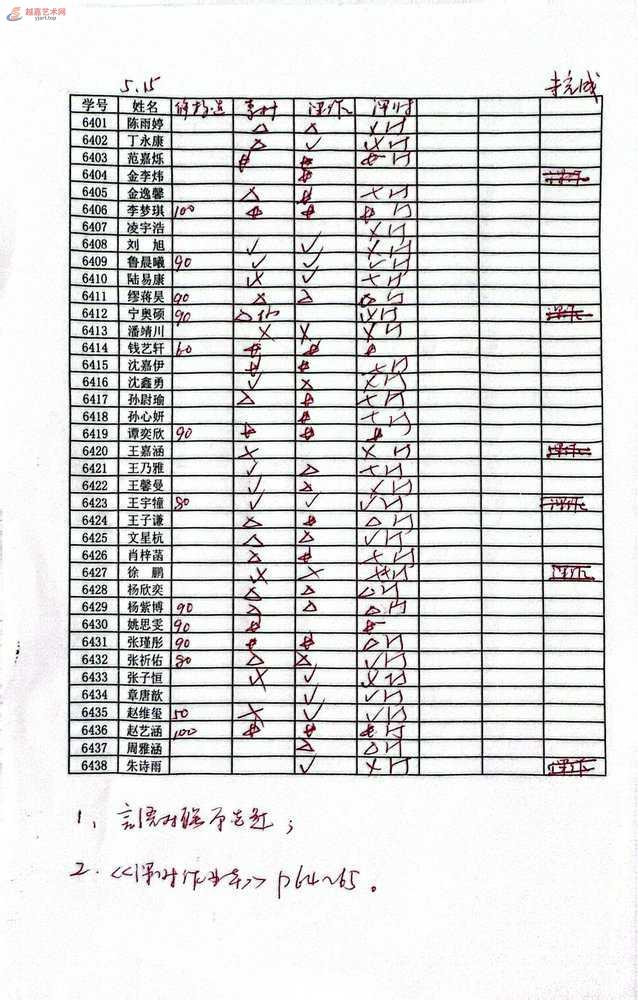 越嘉艺术网
yjart.top
5.15 未完成
学号 姓名 素材 课作 课时
6401 陈雨婷 △ × × 门
6402 丁永康 △ ✓ × 门
6403 范嘉烁 门
6404 金李炜 课作
6405 金逸馨 △ × 门
6406 李梦琪 100 门
6407 凌宇浩 × 门
6408 刘旭 ✓ ✓ × 门
6409 鲁晨曦 90 ✓ ✓ ✓ 门
6410 陆易康 × ✓ × 门
6411 缪蒋昊 90 △ △ △ 门
6412 宁奥硕 90 △ × 门 课作
6413 潘靖川 × × × 门
6414 钱艺轩 60
6415 沈嘉伊 × 门
6416 沈鑫勇 ✓ × × 门
6417 孙尉瑜 △ × 门
6418 孙心妍 × 门
6419 谭奕欣 90
6420 王嘉涵 × × 门 课作
6421 王乃雅 ✓ △ × 门
6422 王馨曼 ✓ △ × 门
6423 王宇犝 80 ✓ ✓ ✓ 门 课作
6424 王子谦 △ △ 门
6425 文星杭 △ △ ✓ 门
6426 肖梓菡 △ × 门
6427 徐鹏 × × 门 课作
6428 杨欣奕 △ △ △ 门
6429 杨紫博 90 △ △ △ 门
6430 姚思雯 90
6431 张瑾彤 90 △ 门
6432 张祈佑 80 △ △ ✓ 门
6433 张子恒 × ✓ × 门
6434 章唐歆 ✓ ✓ 门
6435 赵维玺 50 × ✓ ✓ 门
6436 赵艺涵 100 门
6437 周雅涵 △ △ 门
6438 朱诗雨 ✓ × 门 课作
1、言语对
2.《课时作业本》P64~65。